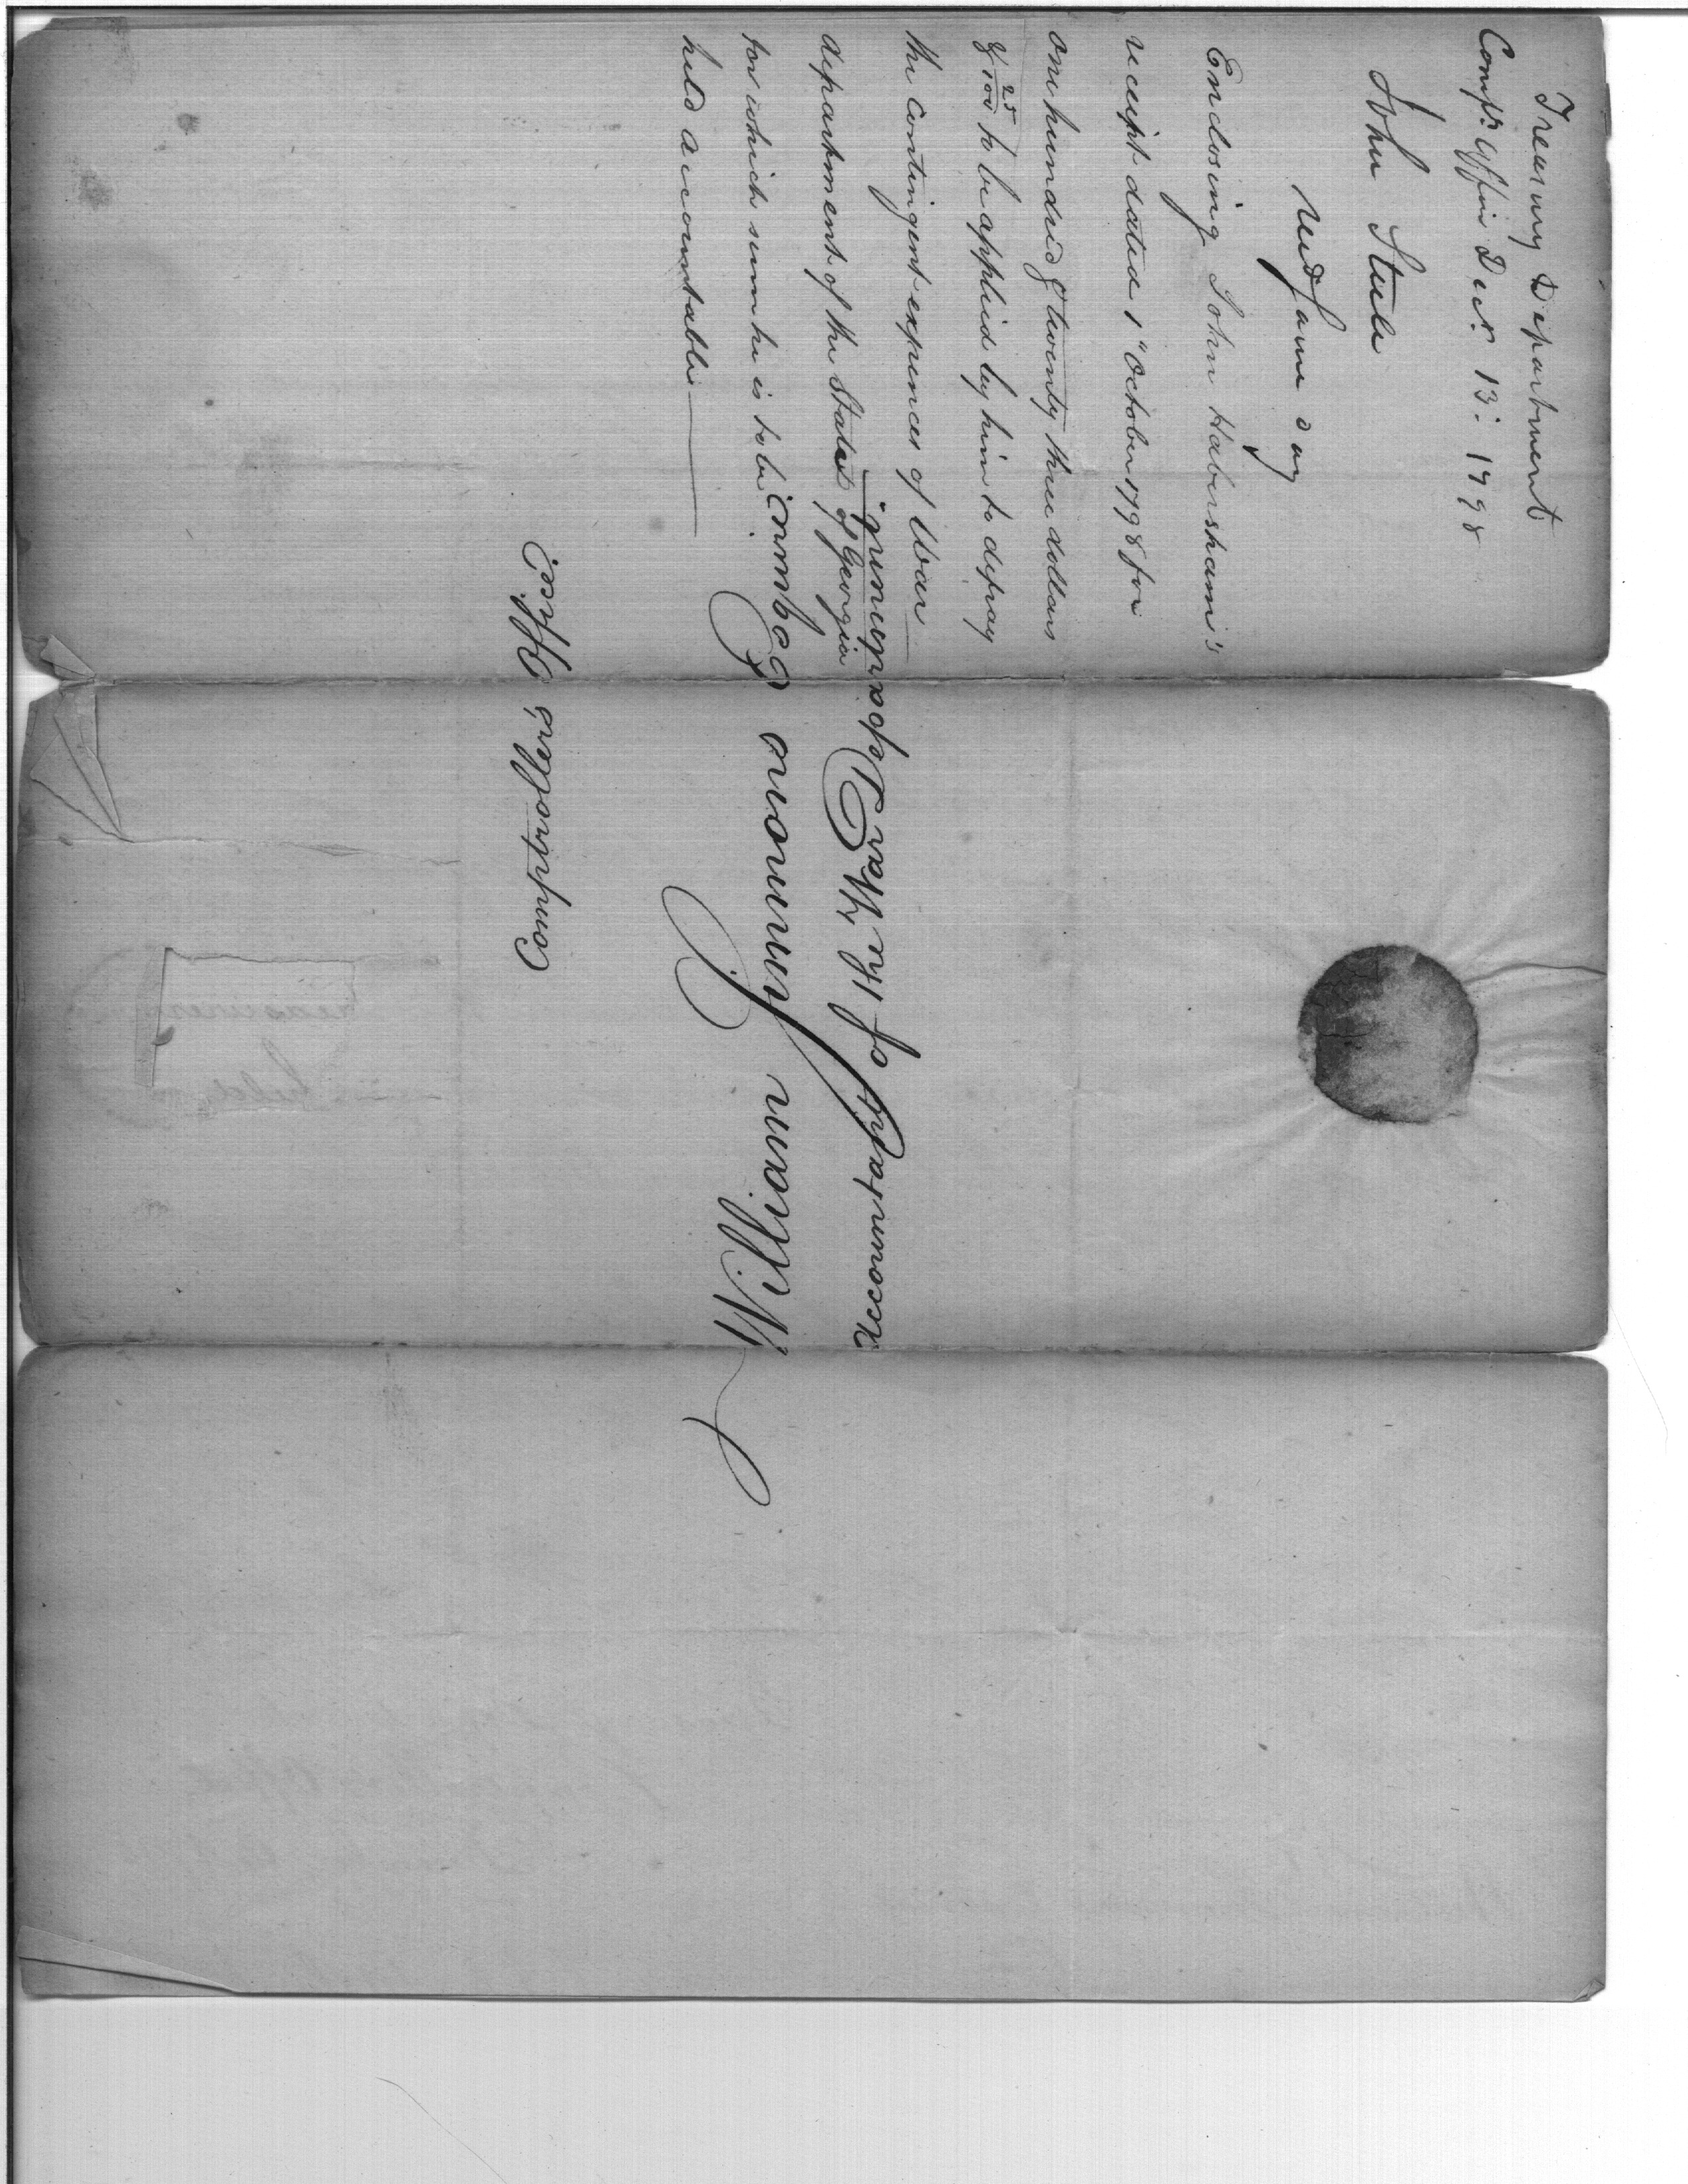 Treasury Department
Compr. Office Decr. 13: 1798
John Steele
recd same day
Enclosing John Habersham's
receipt dated 1" October 1798 for
one hundred & twenty three dollars
& 25/100 to be applied by him to defray
the Contingent expences of War
department of the State of Georgia
for which sum he is to be
held accountable
William Simmons Esquire
Accountant of the War Department
Comptrollers Office